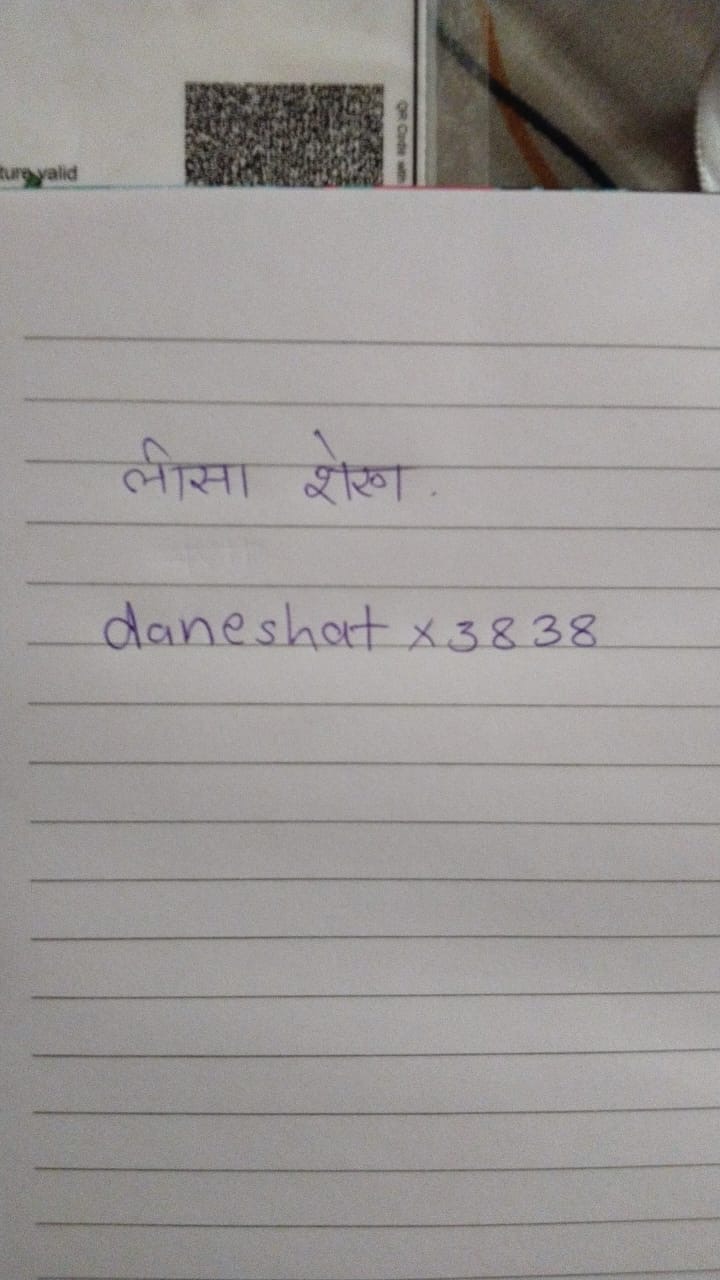 ture valid
QR Code with
लीसा शेख.
daneshat x3838